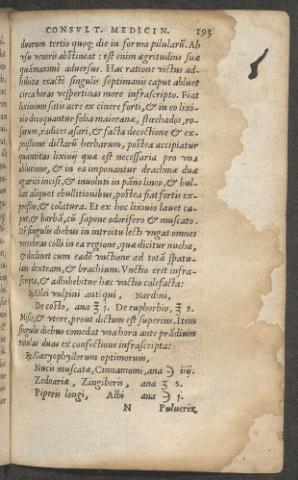 CONSVLT. MEDICIN. 195
duorum tertio quoq; die in forma pilularũ. Ab
vsu veneris abstineat: est enim ægritudini suæ
quàmmaximè aduersus. Hac ratione victus ad-
hibita exactè singulis septimanis caput abluet
circa horas vespertinas more infrascripto. Fiat
lixiuium satis acre ex cinere forti, & in eo lixi-
uio decoquantur folia maioranæ, stœchados, ro-
sarum, radices asari, & facta decoctione & ex-
pressione dictarũ herbarum, postea accipiatur
quantitas lixiuij quæ est necessaria pro vna
ablutione, & in ea imponantur drachmæ duæ
agarici incisi, & inuoluti in pãno lineo, & bul-
liat aliquot ebullitionibus, postea fiat fortis ex-
pressio, & colatura. Et ex hoc lixiuio lauet ca-
put, & barbã, cũ sapone odorifero & muscato.
Itẽ singulis diebus in introitu lecti vngat omnes
vertebras colli in ea regione, quæ dicitur nucha,
& descẽdet cum eadẽ vnctione ad totã spatu-
lam dextram, & brachium. Vnctio erit infra-
scripta, & adhibebitur hæc vnctio calefacta:
℞. Olei vulpini antiqui, Nardini,
De costo, ana ℥ j. De euphorbio, ℥ s.
Misce, & vtere, prout dictum est superius. Item
singulis diebus comedat vna hora ante prãdium
rotulas duas ex confectione infrascripta:
℞. Garyophyllorum optimorum,
Nucis muscatæ, Cinnamomi, ana ℈ iiij.
Zedoariæ, Zingiberis, ana ʒ s.
Piperis longi, Albi ana ℈ j.
N Pulueriz.